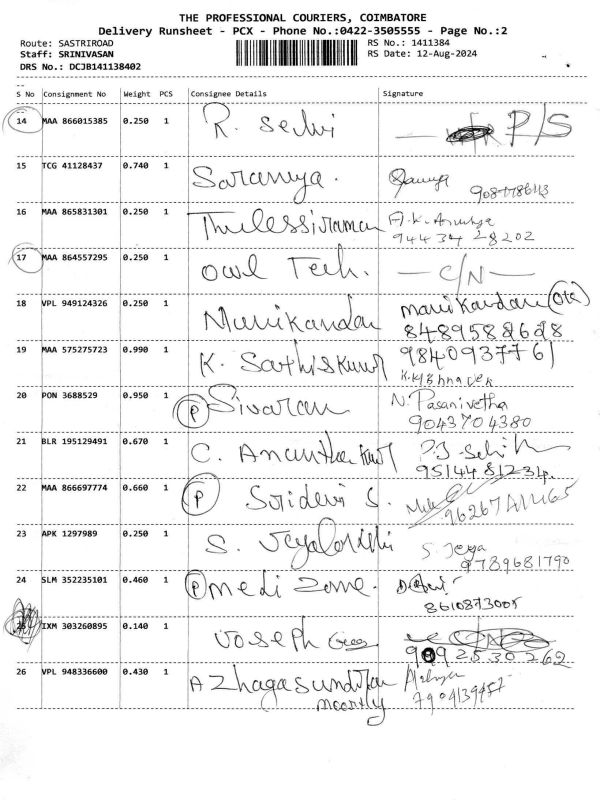 THE PROFESSIONAL COURIERS, COIMBATORE
Delivery Runsheet - PCX - Phone No.:0422-3505555 - Page No.:2
Route: SASTRIROAD
Staff: SRINIVASAN
DRS No.: DCJB141138402
RS No.: 1411384
RS Date: 12-Aug-2024
--
S No Consignment No Weight PCS Consignee Details Signature
14 MAA 866015385 0.250 1 R. Selvi P/S
15 TCG 41128437 0.740 1 Saranya.
16 MAA 865831301 0.250 1 Thulessiraman A.K.
94434 28202
17 MAA 864557295 0.250 1 Owl Tech. — C/N —
18 VPL 949124326 0.250 1 Manikandan manikandan
8489588628
19 MAA 575275723 0.990 1 K. Sathiskumar 9840937761
20 PON 3688529 0.950 1 P Sivaram N. Pasanivetha
9043704380
21 BLR 195129491 0.670 1 C. Ananthakumar
9514481234
22 MAA 866697774 0.660 1 P Sridevi S.
23 APK 1297989 0.250 1 S. S. Jeya
9789681790
24 SLM 352235101 0.460 1 P medi zone.
8610873005
25 IXM 303260895 0.140 1 Joseph
9092530262
26 VPL 948336600 0.430 1 Azhagasundara
moorthy